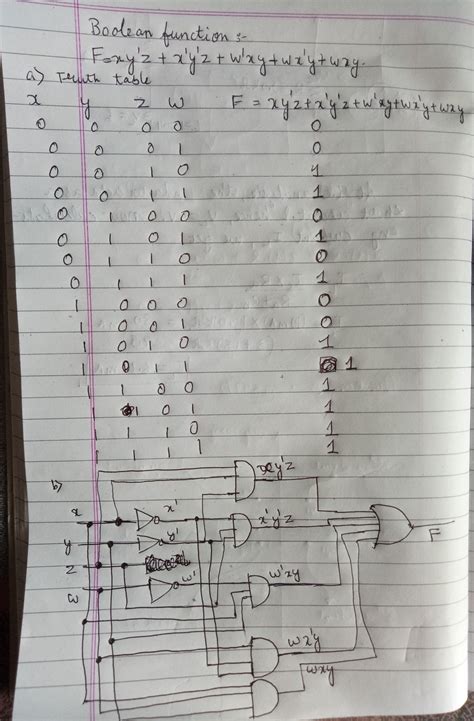 Boolean function :-
F=xy'z + x'y'z + w'xy + wx'y + wxy.
a) Truth table
x y z w F = xy'z+x'y'z+w'xy+wx'y+wxy
0 0 0 0 0
0 0 0 1 0
0 0 1 0 1
0 0 1 1 1
0 1 0 0 0
0 1 0 1 1
0 1 1 0 0
0 1 1 1 1
1 0 0 0 0
1 0 0 1 0
1 0 1 0 1
1 0 1 1 1
1 1 0 0 1
1 1 0 1 1
1 1 1 0 1
1 1 1 1 1
b)
xy'z
x x'
y y' x'y'z
F
z
w w' w'xy
wx'y
wxy